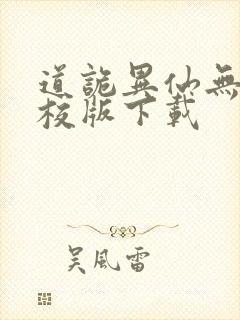 道詭異仙無
校版下載
吴風雷